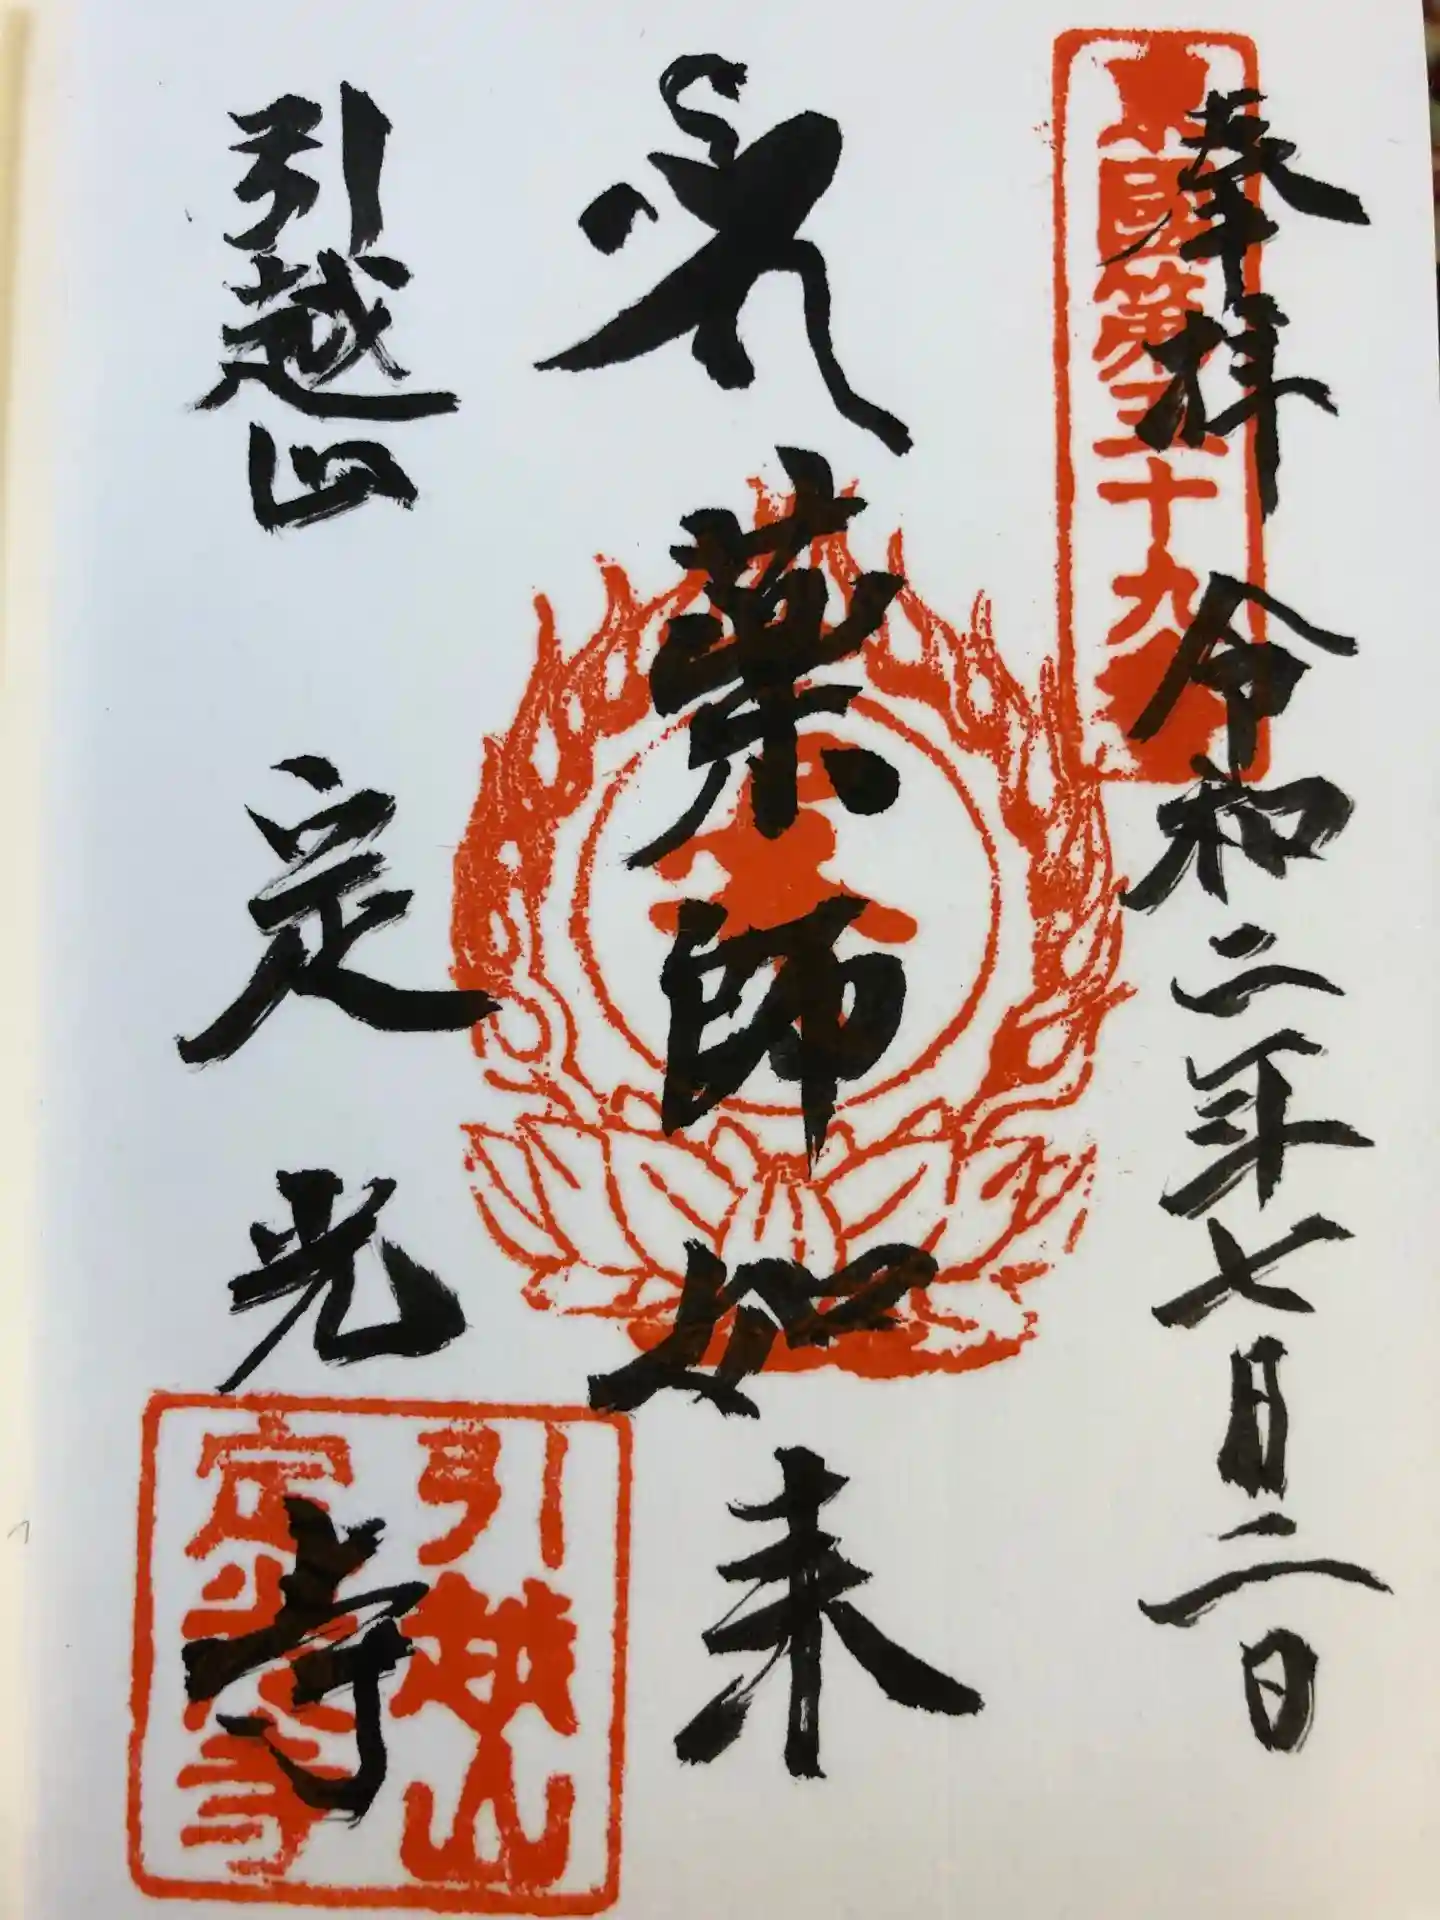 奉拝 令和二年七月二日
東國第五十九番
薬師如来
引越山 定光寺
引越山
定光寺